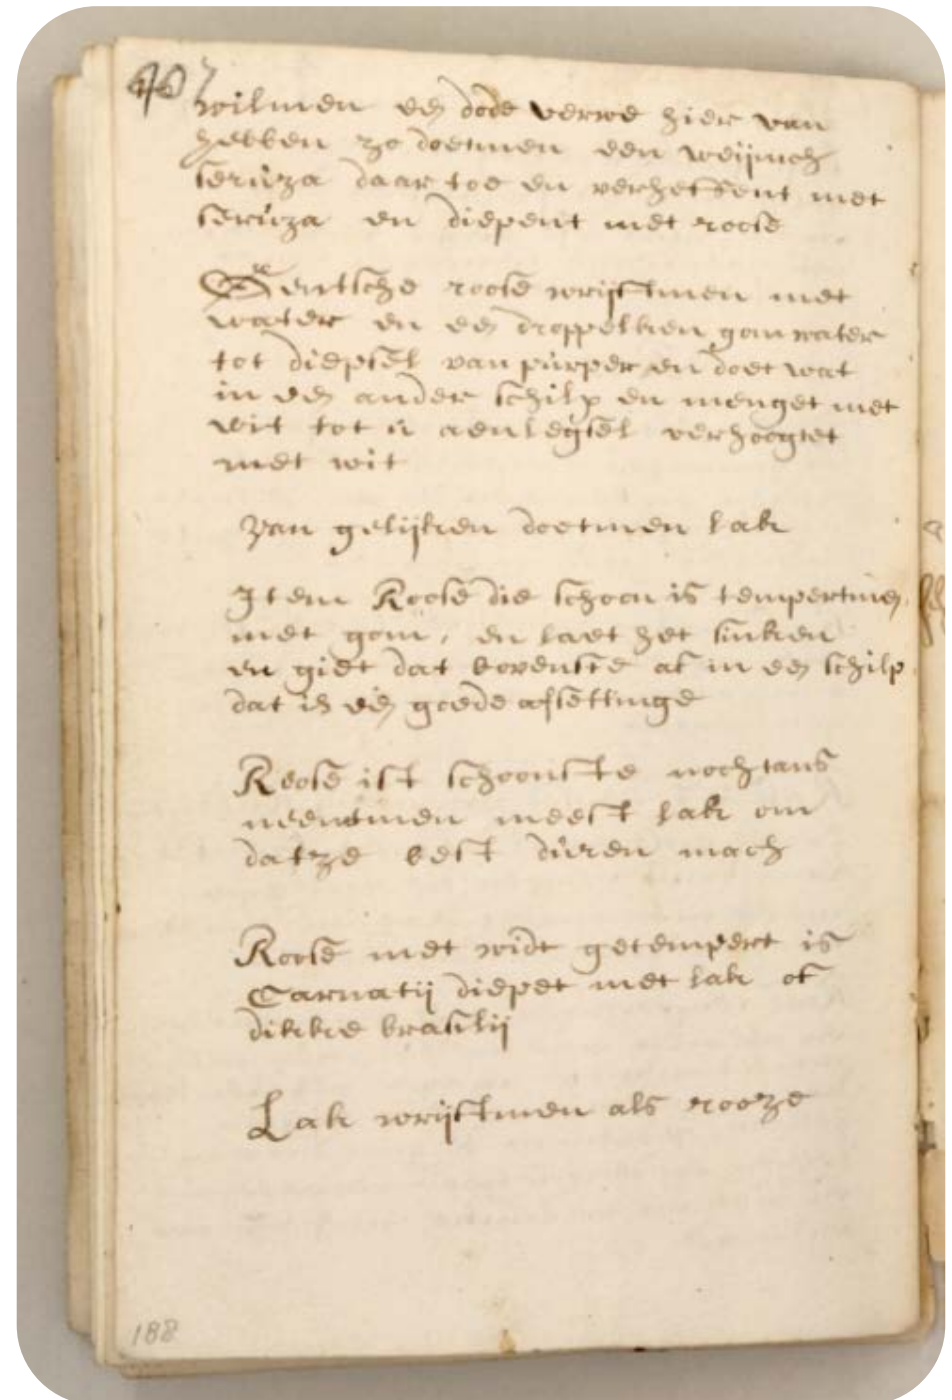 wilmen een dode verwe hier van
hebben zo doetmen een weijnich
seruza daar toe en verheffent met
seruza en diepent met roose
Gentsche roose wrijftmen met
water en een droppelken gom water
tot diepsel van purper en doet wat
in een ander schilp en menget met
wit tot u aenlegsel verhoogtet
met wit
Van gelijken doetmen lak
Item Roose die schoon is tempertmen
met gom, en laet het sinken
en giet dat bovenste af in een schilp
dat is een goede afsettinge
Roose ist schoonste nochtans
neemtmen meest lak om
datze best duren mach
Roose met widt getempert is
Carnatij diepet met lak of
dikke brasilij
Lak wrijftmen als rooze
188